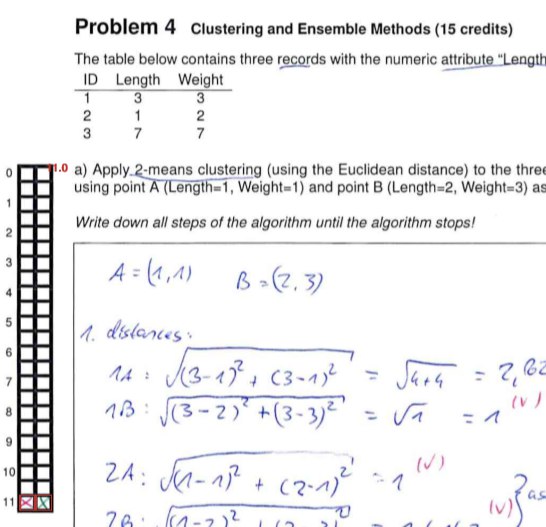 Problem 4 Clustering and Ensemble Methods (15 credits)
The table below contains three records with the numeric attribute "Length
ID Length Weight
1 3 3
2 1 2
3 7 7
0 11.0 a) Apply 2-means clustering (using the Euclidean distance) to the three
using point A (Length=1, Weight=1) and point B (Length=2, Weight=3) as
1
2 Write down all steps of the algorithm until the algorithm stops!
3 A = (1,1) B = (2,3)
4
5 1. distances:
6
7 1A : √(3-1)² + (3-1)² = √4+4 = 2,82
8 1B : √(3-2)² + (3-3)² = √1 = 1 (√)
9
10 2A : √(1-1)² + (2-1)² = 1 (√)
11 } as
2B : √(1-2)² (√)